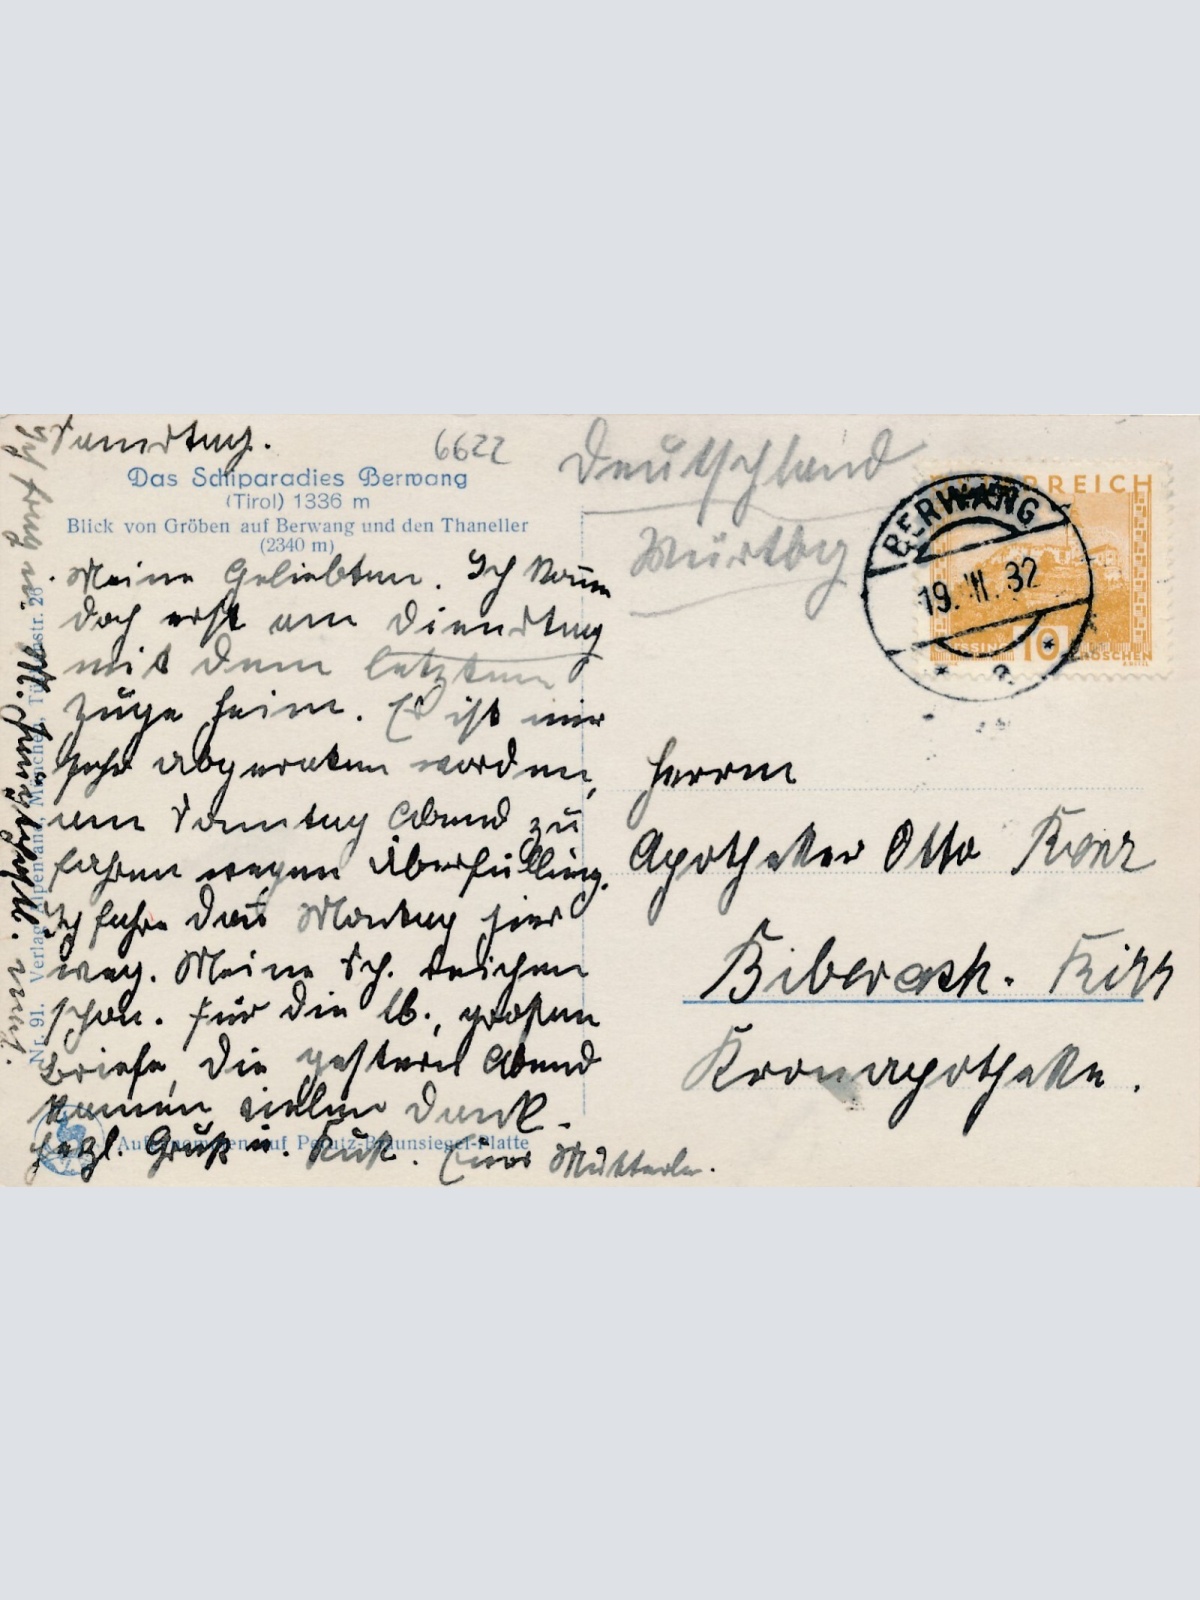 Samstag.
6622
Das Schiparadies Berwang
(Tirol) 1336 m
Blick von Gröben auf Berwang und den Thaneller
(2340 m)
Meine Geliebten. Ich komme
doch erst am Dienstag
mit dem letzten
Zuge heim. Es ist mir
sehr abgeraten worden,
am Sonntag Abend zu
fahren wegen Überfüllung.
Ich fahre das Montag hier
weg. Meine Sch. reichen
schon. Für die lb., großen
Briefe, die gestern Abend
kamen vielen Dank.
Herzl. Gruß u. Kuß. Euer Mutterle.
Aufgenommen auf Perutz-Braunsiegel-Platte
Nr. 91. Verlag Alpenland, München, 26
Ich
Deutschland
Württbg
ÖSTERREICH
10 GROSCHEN
BERWANG
19. III. 32
Herrn
Apotheker Otto
Biberach. Riss
Kronapotheke.